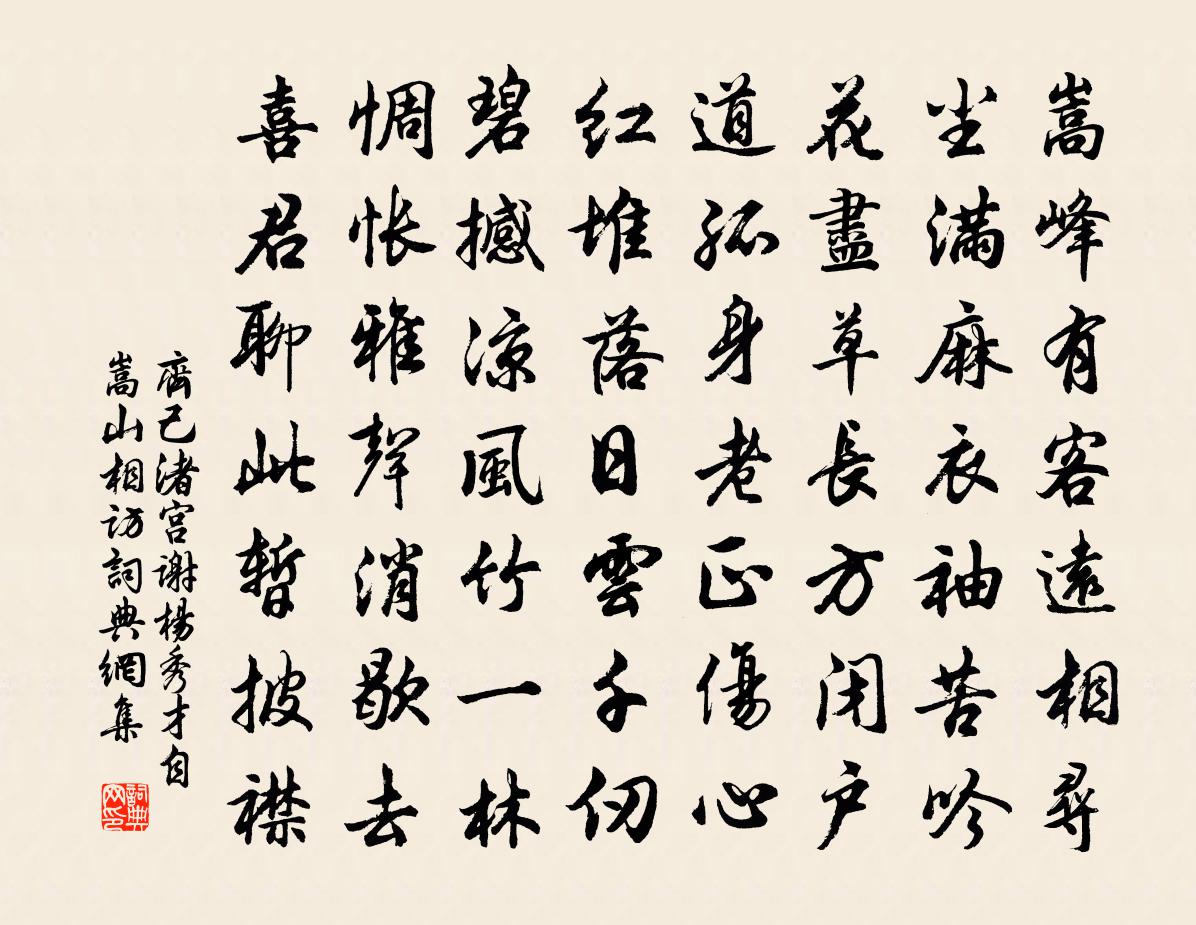 嵩峰有客遠相尋
尘满麻衣袖苦吟
花盡草長方闭户
道孤身老正傷心
红堆落日雲千仞
碧撼凉風竹一林
惆怅雅聲消歇去
喜君聊此暫披襟
齊己渚宫謝楊秀才自
嵩山相访詞典網集
詞典网印